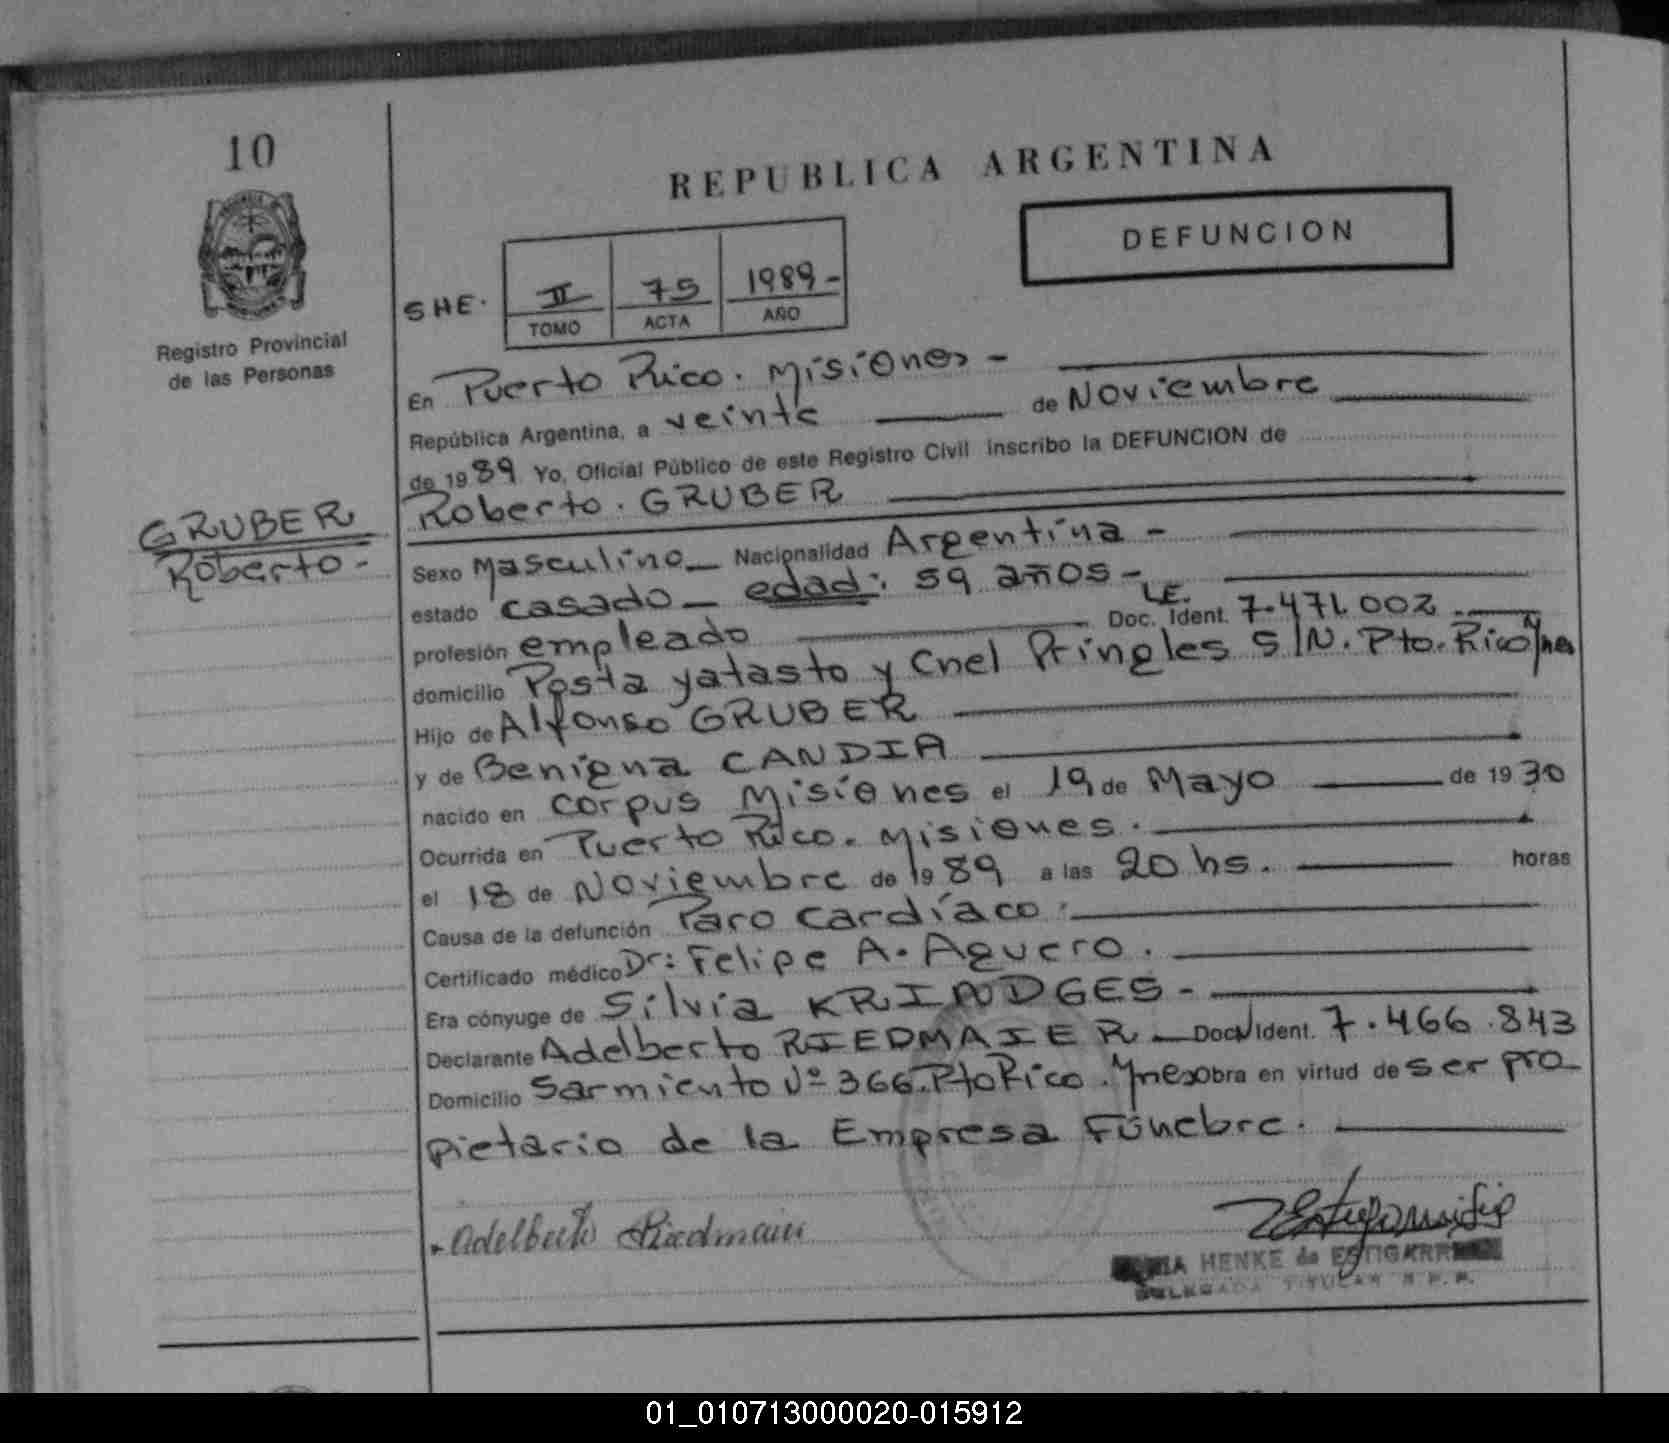 10
REPUBLICA ARGENTINA
DEFUNCION
Registro Provincial
de las Personas
SHE.
II 75 1989-
TOMO ACTA AÑO
En Puerto Rico. Misiones -
República Argentina, a veinte de Noviembre
de 1989 Yo, Oficial Público de este Registro Civil inscribo la DEFUNCION de
GRUBER
Roberto -
Roberto. GRUBER
Sexo Masculino_ Nacionalidad Argentina -
estado casado_ edad: 59 años -
profesión empleado L.E. Doc. Ident. 7.471.002
domicilio Posta yatasto y Cnel Pringles S/N. Pto. Rico Mnes
Hijo de Alfonso GRUBER
y de Benigna CANDIA
nacido en Corpus Misiones el 19 de Mayo de 1930
Ocurrida en Puerto Rico. Misiones.
el 18 de Noviembre de 1989 a las 20 hs. horas
Causa de la defunción Paro Cardíaco.
Certificado médico Dr: Felipe A. Aguero.
Era cónyuge de Silvia KRINDGES -
Declarante Adelberto RIEDMAIER_ Doc. Ident. 7.466.843
Domicilio Sarmiento Nº 366. Pto Rico. Mnes obra en virtud de ser pro_
pietario de la Empresa Fúnebre.
Adelberto Riedmaier
HENKE de ESTIGARR
DELEGADA TITULAR R.P.P.
01_010713000020-015912